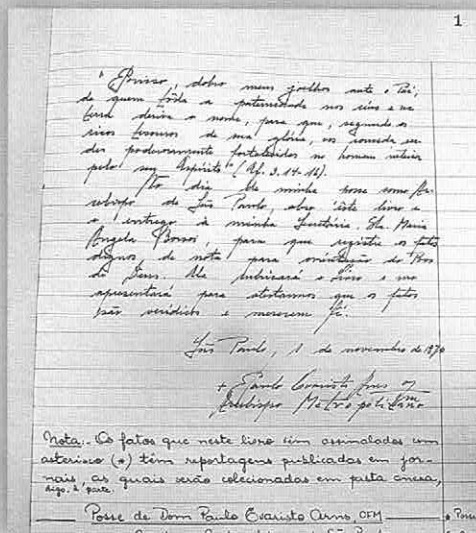 1
"Por isso, dobro meus joelhos ante o Pai,
de quem tôda a paternidade nos céus e na
terra deriva o nome, para que, segundo os
ricos tesouros de sua glória, vos conceda se-
des poderosamente fortalecidos no homem interior
pelo seu Espírito" (Ef. 3.14-16).
No dia de minha posse como Ar-
cebispo de São Paulo, abro êste livro e
o entrego à minha Secretária, Sta. Maria
Angela Borsoi, para que registre os fatos
dignos de nota para orientação do Povo
de Deus. Ela rubricará o livro e mo
apresentará para atestarmos que os fatos
são verídicos e merecem fé.
São Paulo, 1 de novembro de 1970
+ Paulo Evaristo Arns
Arcebispo Metropolitano
Nota: Os fatos que neste livro vêm assinalados com
asterisco (*) têm reportagens publicadas em jor-
nais, as quais serão colecionadas em pasta anexa,
digo, à parte.
Posse de Dom Paulo Evaristo Arns, OFM